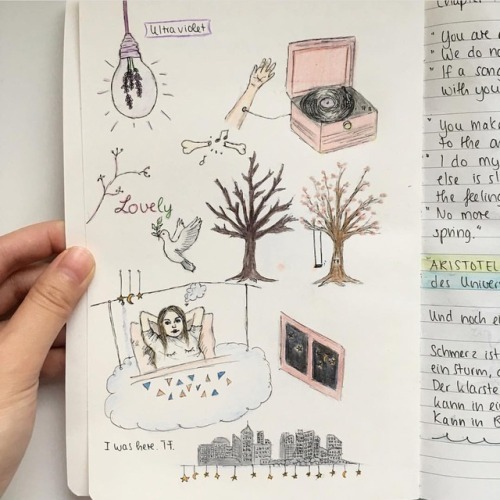 Ultraviolet
Lovely
I was here.
Chapter
"You are
"We do no
"If a song
with you
"You make
to the
"I do my
else is
the feeling
"No more
spring."
"ARISTOTEL
des Univer
Und noch ei
Schmerz ist
ein Sturm,
Der klarste
kann in ei
kann in